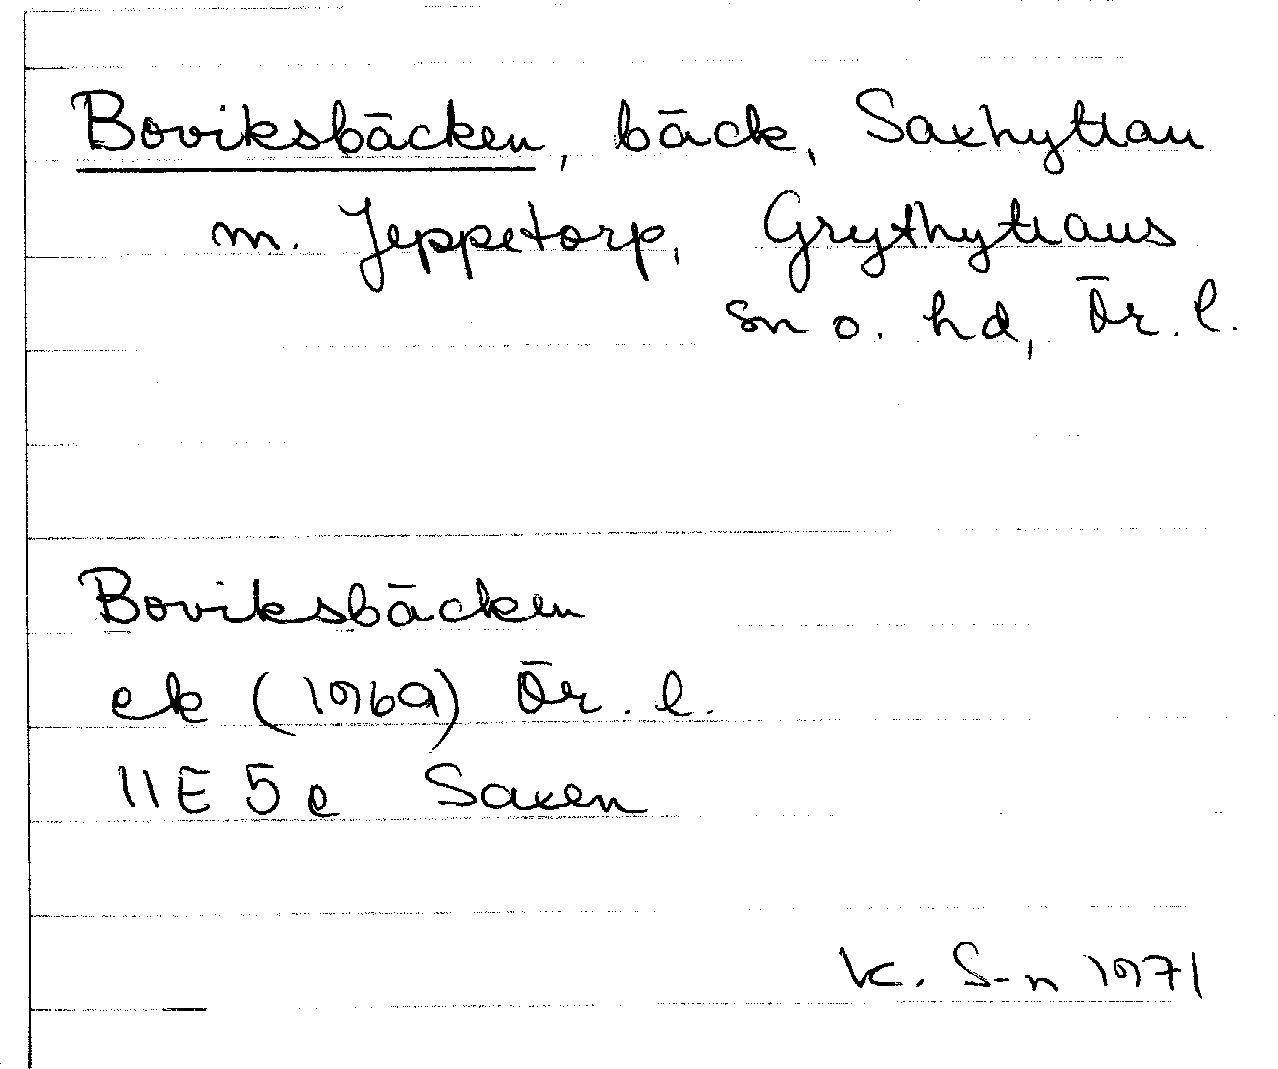 Boviksbäcken, bäck, Saxhyttan
m. Jeppetorp, Grythyttans
sn o. hd, Ör. l.
Boviksbäcken
ek (1969) Ör. l.
11E 5e Saxen
K. S-n 1971